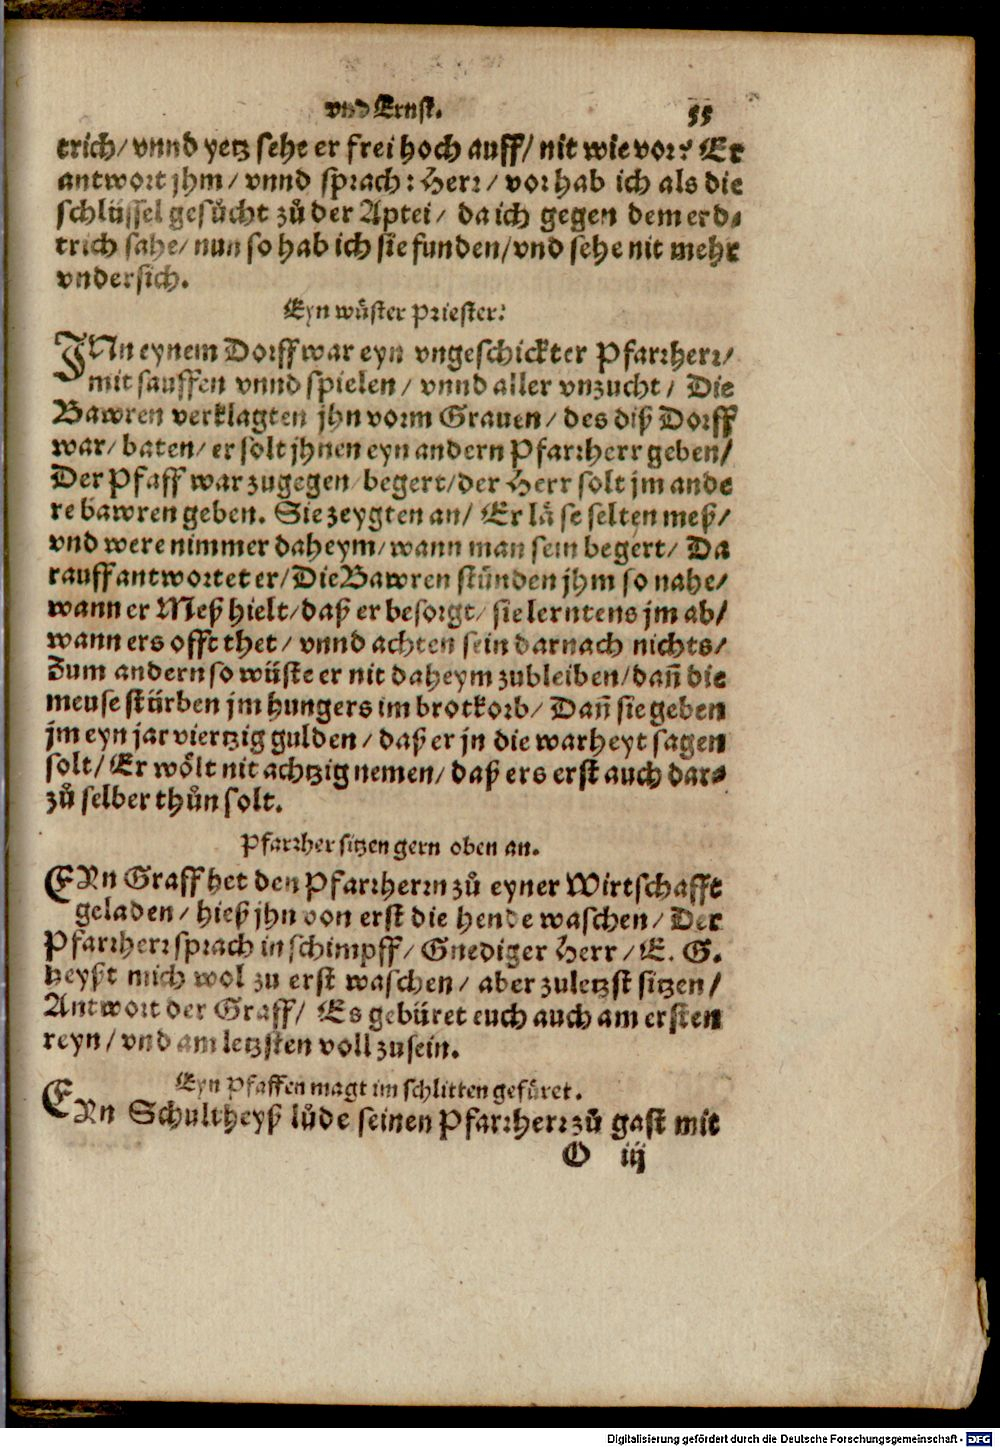 vnd Ernst. 55
trich/ vnnd yetz sehe er frei hoch auff/ nit wie vor? Er
antwort jhm/ vnnd sprach: Herr/ vor hab ich als die
schlüssel gesůcht zů der Aptei/ da ich gegen dem erd-
trich sahe/ nun so hab ich sie funden/ vnd sehe nit mehr
vndersich.
Eyn wůster Priester.
JNn eynem Dorff war eyn vngeschickter Pfarrherr/
mit sauffen vnnd spielen/ vnnd aller vnzucht/ Die
Bawren verklagten jhn vorm Grauen/ des diß Dorff
war/ baten/ er solt jhnen eyn andern Pfarrherr geben/
Der Pfaff war zugegen/ begert/ der Herr solt jm ande
re bawren geben. Sie zeygten an/ Er låse selten meß/
vnd were nimmer daheym/ wann man sein begert/ Da
rauff antwortet er/ Die Bawren stünden jhm so nahe/
wann er Meß hielt/ daß er besorgt/ sie lerntens jm ab/
wann ers offt thet/ vnnd achten sein darnach nichts/
Zum andern so wüste er nit daheym zubleiben/ dañ die
meuse stürben jm hungers im brotkorb/ Dañ sie geben
jm eyn jar viertzig gulden/ daß er jn die warheyt sagen
solt/ Er wölt nit achtzig nemen/ daß ers erst auch dar-
zů selber thůn solt.
Pfarrher sitzen gern oben an.
EYn Graff het den Pfarrherrn zů eyner Wirtschafft
geladen/ hieß jhn von erst die hende waschen/ Der
Pfarrherr sprach in schimpff/ Gnediger Herr/ E. G.
heyßt mich wol zu erst waschen/ aber zuletzst sitzen/
Antwort der Graff/ Es gebüret euch auch am ersten
reyn/ vnd am letzsten voll zusein.
Eyn Pfaffen magt im schlitten gefüret.
EYn Schultheyß lůde seinen Pfarrherr zů gast mit
O iij
Digitalisierung gefördert durch die Deutsche Forschungsgemeinschaft - DFG